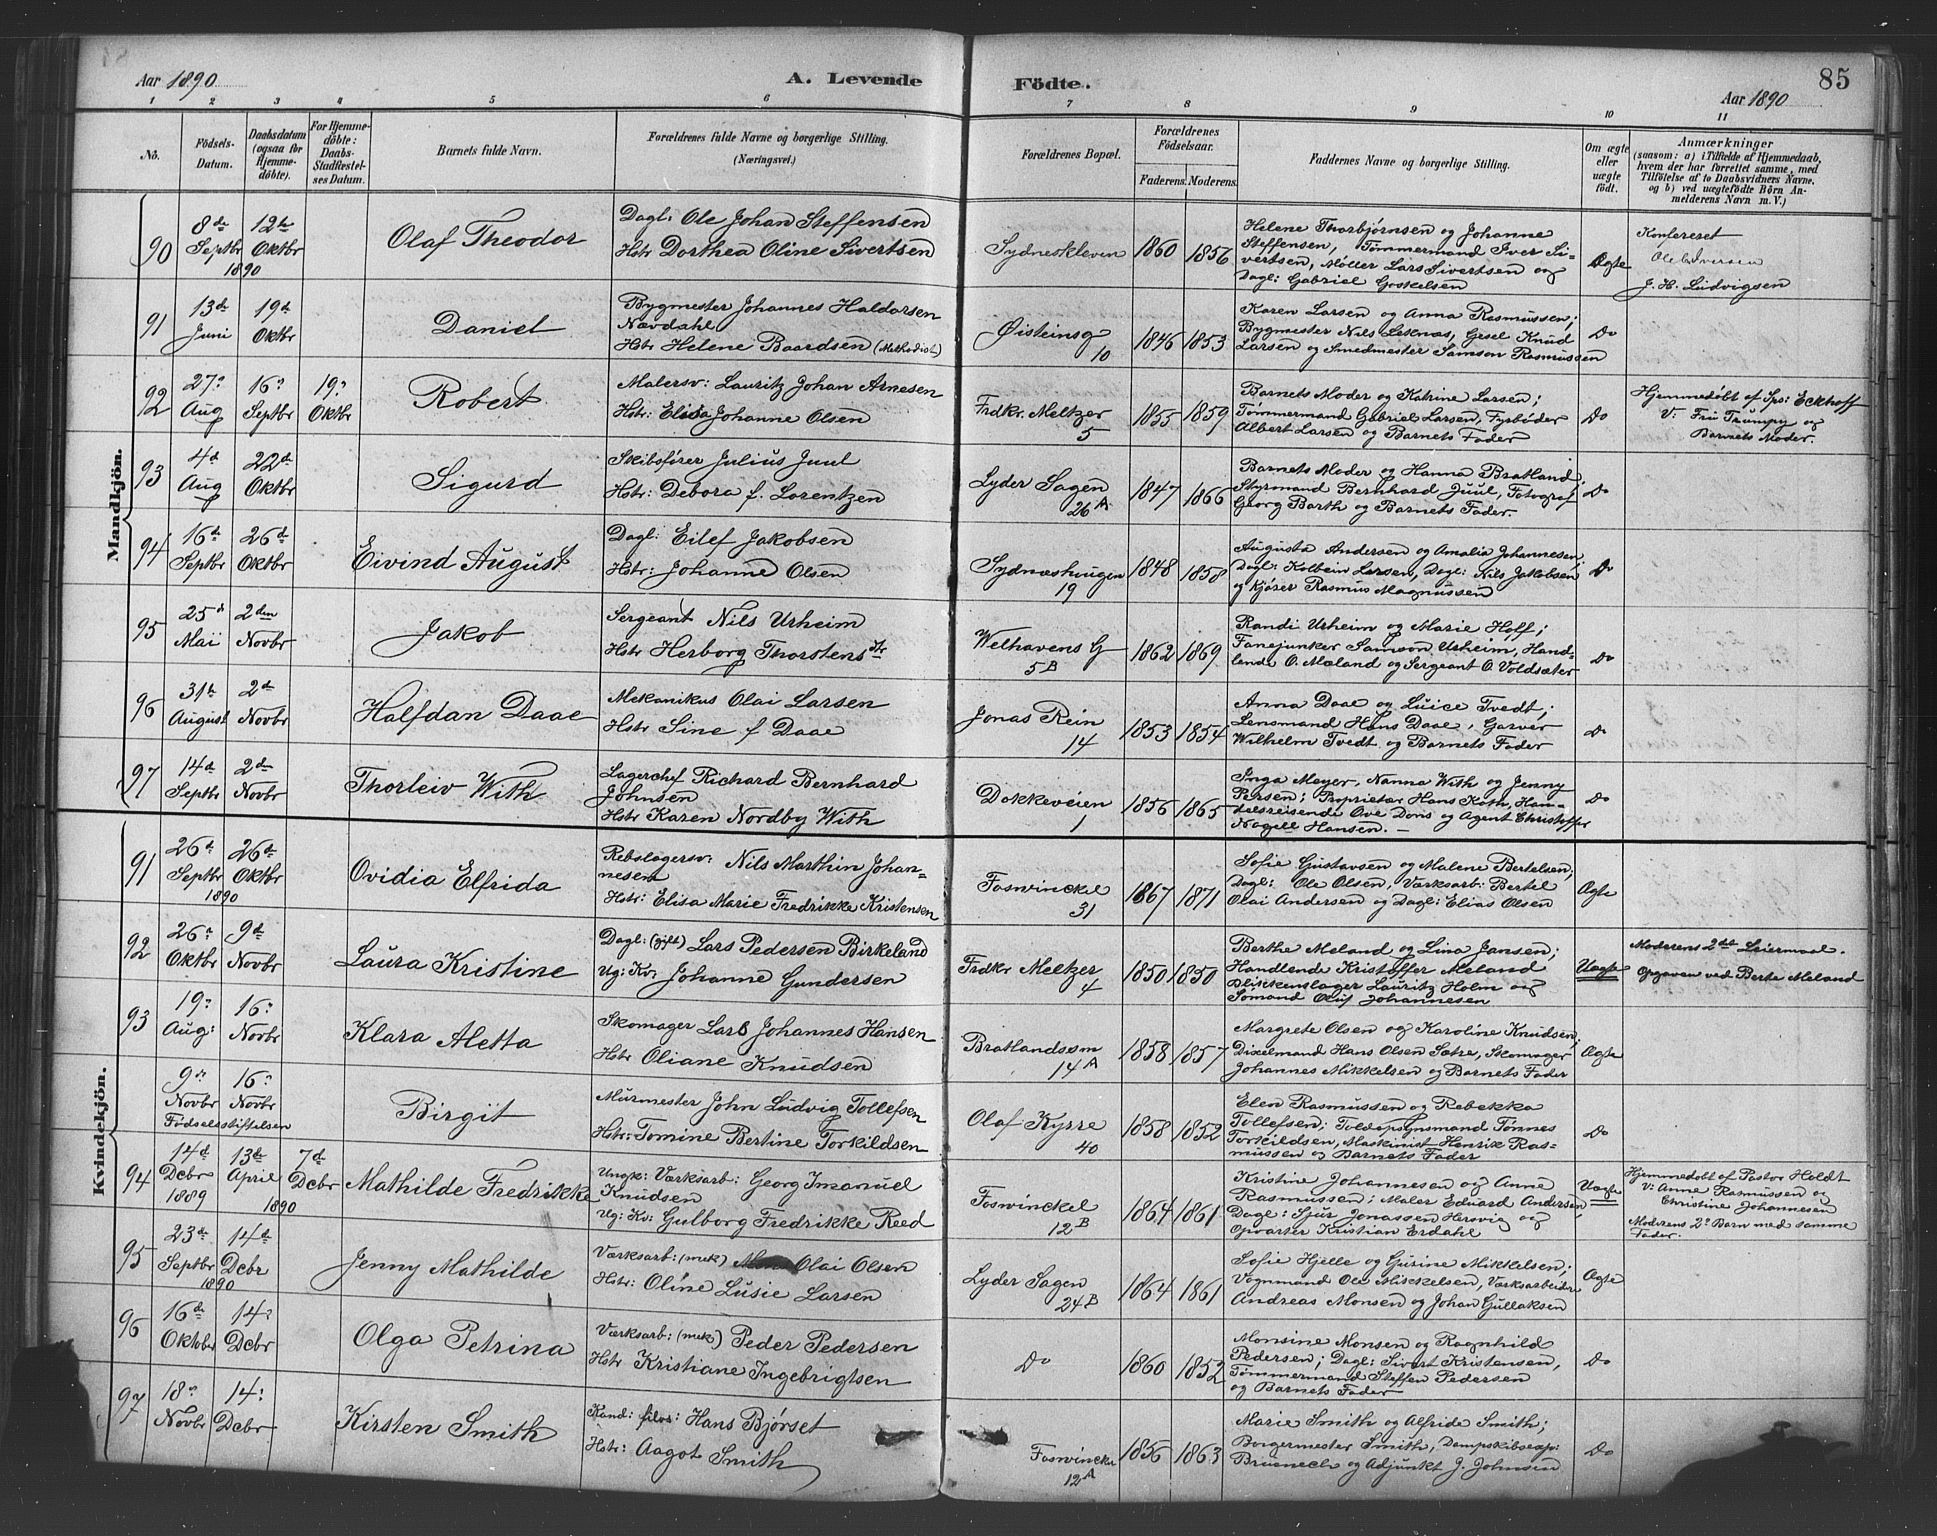 Aar 1890
A. Levende Födte.
Aar 1890
85
1 2 3 4 5 6 7 8 9 10 11
No.
Födsels-
Datum.
Daabsdatum
(ogsaa for
Hjemme-
döbte).
For Hjemme-
döbte:
Daabs-
Stadfæstel-
ses Datum.
Barnets fulde Navn.
Forældrenes fulde Navne og borgerlige Stilling.
(Næringsvei.)
Forældrenes Bopæl.
Forældrenes
Födselsaar.
Faderens. Moderens.
Faddernes Navne og borgerlige Stilling.
Om ægte
eller
uægte
födt.
Anmærkninger
(saasom: a) i Tilfælde af Hjemmedaab,
hvem der har forrettet samme, med
Tilföielse af to Daabsvidners Navne,
og b) ved uægtefödte Börn An-
melderens Navn m. V.)
Mandkjön.
90
8de
Septbr
1890
12te
Oktbr
Olaf Theodor
Dagl: Ole Johan Steffensen
Hstr Dorthea Oline Sivertsen
Sydneskleven
1860
1856
Helene Thorbjørnsen og Johanne
Steffensen, Tømmermand Iver Si-
vertsen, Møller Lars Sivertsen og
Dagl: Gabriel Goskelsen
Ægte
Konfereret
Ole Iversen
J. H. Ludvigsen
91
13de
Juni
19d
Oktbr
Daniel
Bygmester Johannes Haldorsen
Nævdahl
Hstr Helene Baardsen (Methodist)
Øisteinsg
10
1846
1853
Karen Larsen og Anna Rasmussen;
Bygmester Nils Leknæs, Gesel Knud
Larsen og Smedmester Samson Rasmussen
Do
92
27?
Aug
16?
Septbr
19?
Oktbr
Robert
Malersv: Lauritz Johan Arnesen
Hstr: Elisa Johanne Olsen
Frdkr Meltzer
5
1855
1859
Barnets Moder og Katrine Larsen;
Tømmermand Gabriel Larsen, Fyrbøder
Albert Larsen og Barnets Fader
Do
Hjemmedøbt af Sps: Eckhoff
V: Fru Trumpy og
Barnets Moder.
93
4d
Aug
22d
Oktbr
Sigurd
Skibsfører Julius Juul
Hstr: Debora f. Lorentzen
Lyder Sagen
26 A
1847
1866
Barnets Moder og Hanna Bratland,
Styrmand Bernhard Juul, Fotograf
Georg Barth og Barnets Fader.
Do
94
16d
Septbr
26d
Oktbr
Eivind August
Dagl: Eilef Jakobsen
Hstr: Johanne Olsen
Sydnæshaugen
19
1848
1858
Augusta Andersen og Amalia Johannesen;
Dagl: Kolbein Larsen, Dagl: Nils Jakobsen
og Kjører Rasmus Magnussen
Do
95
25d
Mai
2den
Novbr
Jakob
Sergeant Nils Urheim
Hstr Herborg Thorstensdtr
Welhavens G
5B
1862
1869
Randi Urheim og Marie Hoff;
Fanejunker Samson Urheim, Hand-
lende O. Mæland og Sergeant O. Voldsæter
Do
96
31te
August
2d
Novbr
Halfdan Daae
Mekanikus Olai Larsen
Hstr Sine f Daae
Jonas Rein
14
1853
1854
Anna Daae og Luice Tvedt;
Lensmand Hans Daae, Garver
Wilhelm Tvedt og Barnets Fader
Do
97
14d
Septbr
2den
Novbr
Thorleiv With
Lagerchef Richard Bernhard
Johnsen
Hstr Karen Nordby With
Dokkeveien
1
1856
1865
Inga Meyer, Nanna With og Jenny
Persen; Proprietær Hans Koth, Han-
delsreisende Ove Dons og Agent Christoffer
Nagell Hansen. —
Do
Kvindekjön.
91
26d
Septbr
1890
26d
Oktbr
Ovidia Elfrida
Rebslagersv: Nils Marthin Johan-
nesen
Hstr: Elisa Marie Fredrikke Kristensen
Foswinckel
31
1867
1871
Sofie Gustavsen og Malene Bertelsen;
Dagl: Ole Olsen, Værksarb: Bertel
Olai Andersen og Dagl: Elias Olsen
Ægte
92
26?
Oktbr
9de
Novbr
Laura Kristine
Dagl: (gift) Lars Pedersen Birkeland
Ug: Kv: Johanne Gundersen
Frdkr Meltzer
4
1850
1850
Berthe Meland og Lina Jansen;
Handlende Kristoffer Meland
Blikkenslager Lauritz Holm og
Sømand Oluf Johannesen
Uægte
Moderens 2det Leiermaal.
Opgaven ved Berte Meland
93
19?
Aug:
16?
Novbr
Klara Aletta
Skomager Lars Johannes Hansen
Hstr Oliane Knudsen
Bratlandssm
14 A
1858
1857
Margrete Olsen og Karoline Knudsen;
Dixelmand Hans Olsen Sætre, Skomager
Johannes Mikkelsen og Barnets Fader
Ægte
9de
Novbr
16?
Novbr
Fødselsstiftelsen
Birgit
Murmester John Ludvig Tollefsen
Hstr: Tomine Bertine Torkildsen
Olaf Kyrre
40
1858
1852
Elen Rasmussen og Rebekka
Tollefsen; Toldopsynsmand Tønnes
Torkildsen, Maskinist Henrik Ras-
mussen og Barnets Fader
Do
94
14d
Dcbr
1889
13de
April
7d
Dcbr
1890
Mathilde Fredrikke
Ungk: Værksarb: Georg Imanuel
Knudsen
Ug: Kv: Gulborg Fredrikke Reed
Foswinckel
12 B
1864
1861
Kristine Johannesen og Anne
Rasmussen; Maler Eduard Andersen,
Dagl: Sjur Jonassen Hersvig og
Opvarter Kristian Erdahl
Uægte
Hjemmedøbt af Pastor Holdt
V: Anne Rasmussen og
Christine Johannesen
Moderens 2? Barn med samme
Fader.
95
23de
Septbr
1890
14d
Dcbr
Jenny Mathilde
Værksarb: (mek) Olai Olsen
Hstr: Oline Lusie Larsen
Lyder Sagen
24 B
1864
1861
Sofie Hjelle og Gurine Mikkelsen;
Vognmand Ole Mikkelsen, Værksarbeider
Andreas Monsen og Johan Gullaksen
Ægte
96
16de
Oktober
14?
Dcbr
Olga Petrina
Værksarb: (mek) Peder Pedersen
Hstr Kristiane Ingebrigtsen
Do
1860
1852
Monsine Monsen og Ragnhild
Pedersen; Dagl: Sivert Kristensen,
Tømmermand Steffen Pedersen
og Barnets Fader
Do
97
18?
Novbr
14?
Dcbr
Kirsten Smith
Kand: filos: Hans Bjørset
Hstr: Aagot Smith
Foswinckel
12 A
1856
1863
Marie Smith og Alfride Smith;
Borgermester Smith, Dampskibsexp:
Bruenech og Adjunkt J. Johnsen
Do